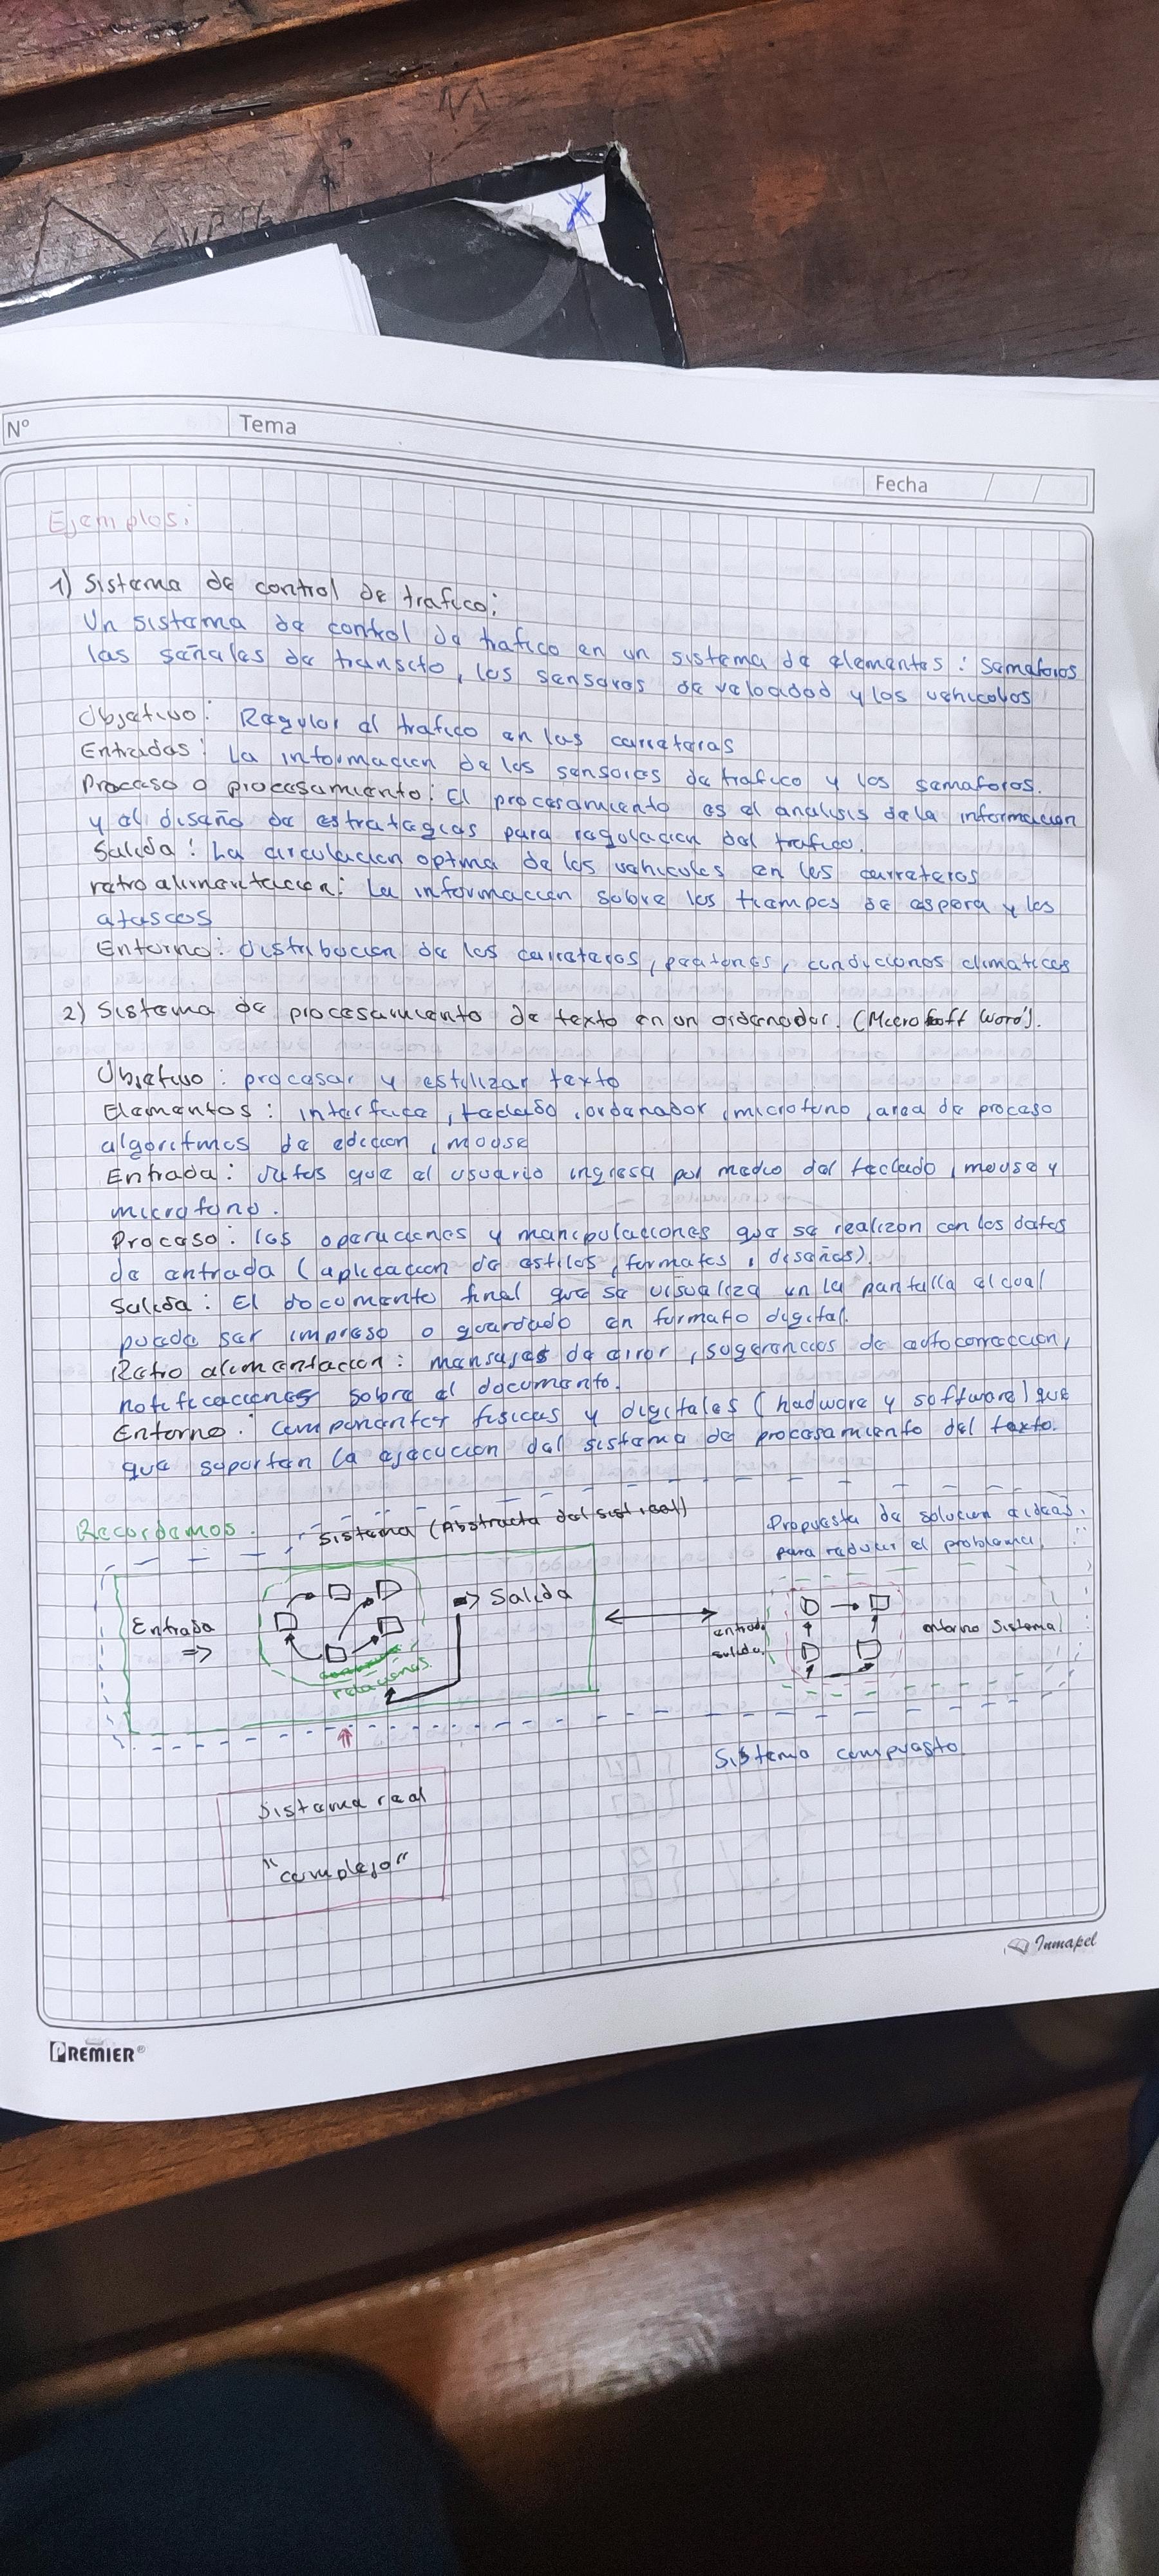 Nº
Tema
Fecha
Ejemplos:
1) Sistema de control de trafico:
Un sistema de control de trafico en un sistema de elementos: semaforos
las señales de transcto, los sensores de velocidad y los vehiculos
Objetivo: Regular el trafico en las carreteras
Entradas: La informacion de los sensores de trafico y los semaforos.
Proceso o procesamiento: El procesamiento es el analisis de la informacion
y el diseño de estrategias para regulacion del trafico.
Salida: La circulacion optma de los vehiculos en les carreteras
retro alimentaccion: La informaccion sobre los tiempos de espera y los
atascos
Entorno: distribucion de las carreteras, peatones, condiciones climaticas
2) Sistema de procesamiento de texto en un ordenador. (Microsoft Word).
Objetivo: procesar y estilizar texto
Elementos: interface, teclado, ordenador, microfono, area de proceso
algoritmos de edicion, mouse
Entrada: datos que el usuario ingresa por medio del teclado, mouse y
microfono.
Proceso: las operaciones y manipulaciones que se realizan con los datos
de entrada (aplicacion de estilos, formatos, diseños).
Salida: El documento final que se visualiza en la pantalla el cual
puede ser impreso o guardado en formato digital.
Retro alimentacion: mensajes de error, sugerencias de autocorreccion,
notificaciones sobre el documento.
Entorno: componentes fisicas y digitales (hadware y software) que
que soportan la ejecucion del sistema de procesamiento del texto.
Recordemos.
Sistema (Abstracta del sist. real)
Propuesta de solucion ideas.
para reducir el problema
Entrada
=> Salida
=>
relaciones.
entrada
salida
entorno Sistema
Sistema compuesto
Sistema real
"complejo"
Inmapel
PREMIER®